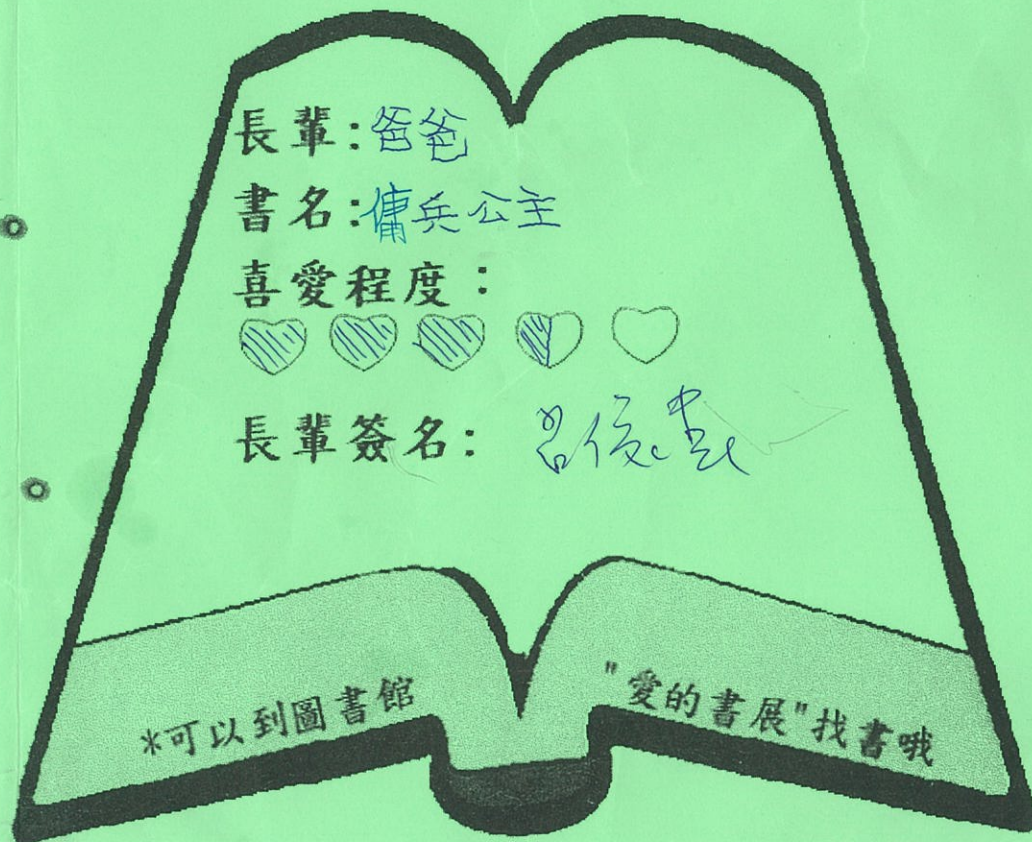 長輩:爸爸
書名:傭兵公主
喜愛程度:
長輩簽名: 呂俊
*可以到圖書館
"愛的書展"找書哦